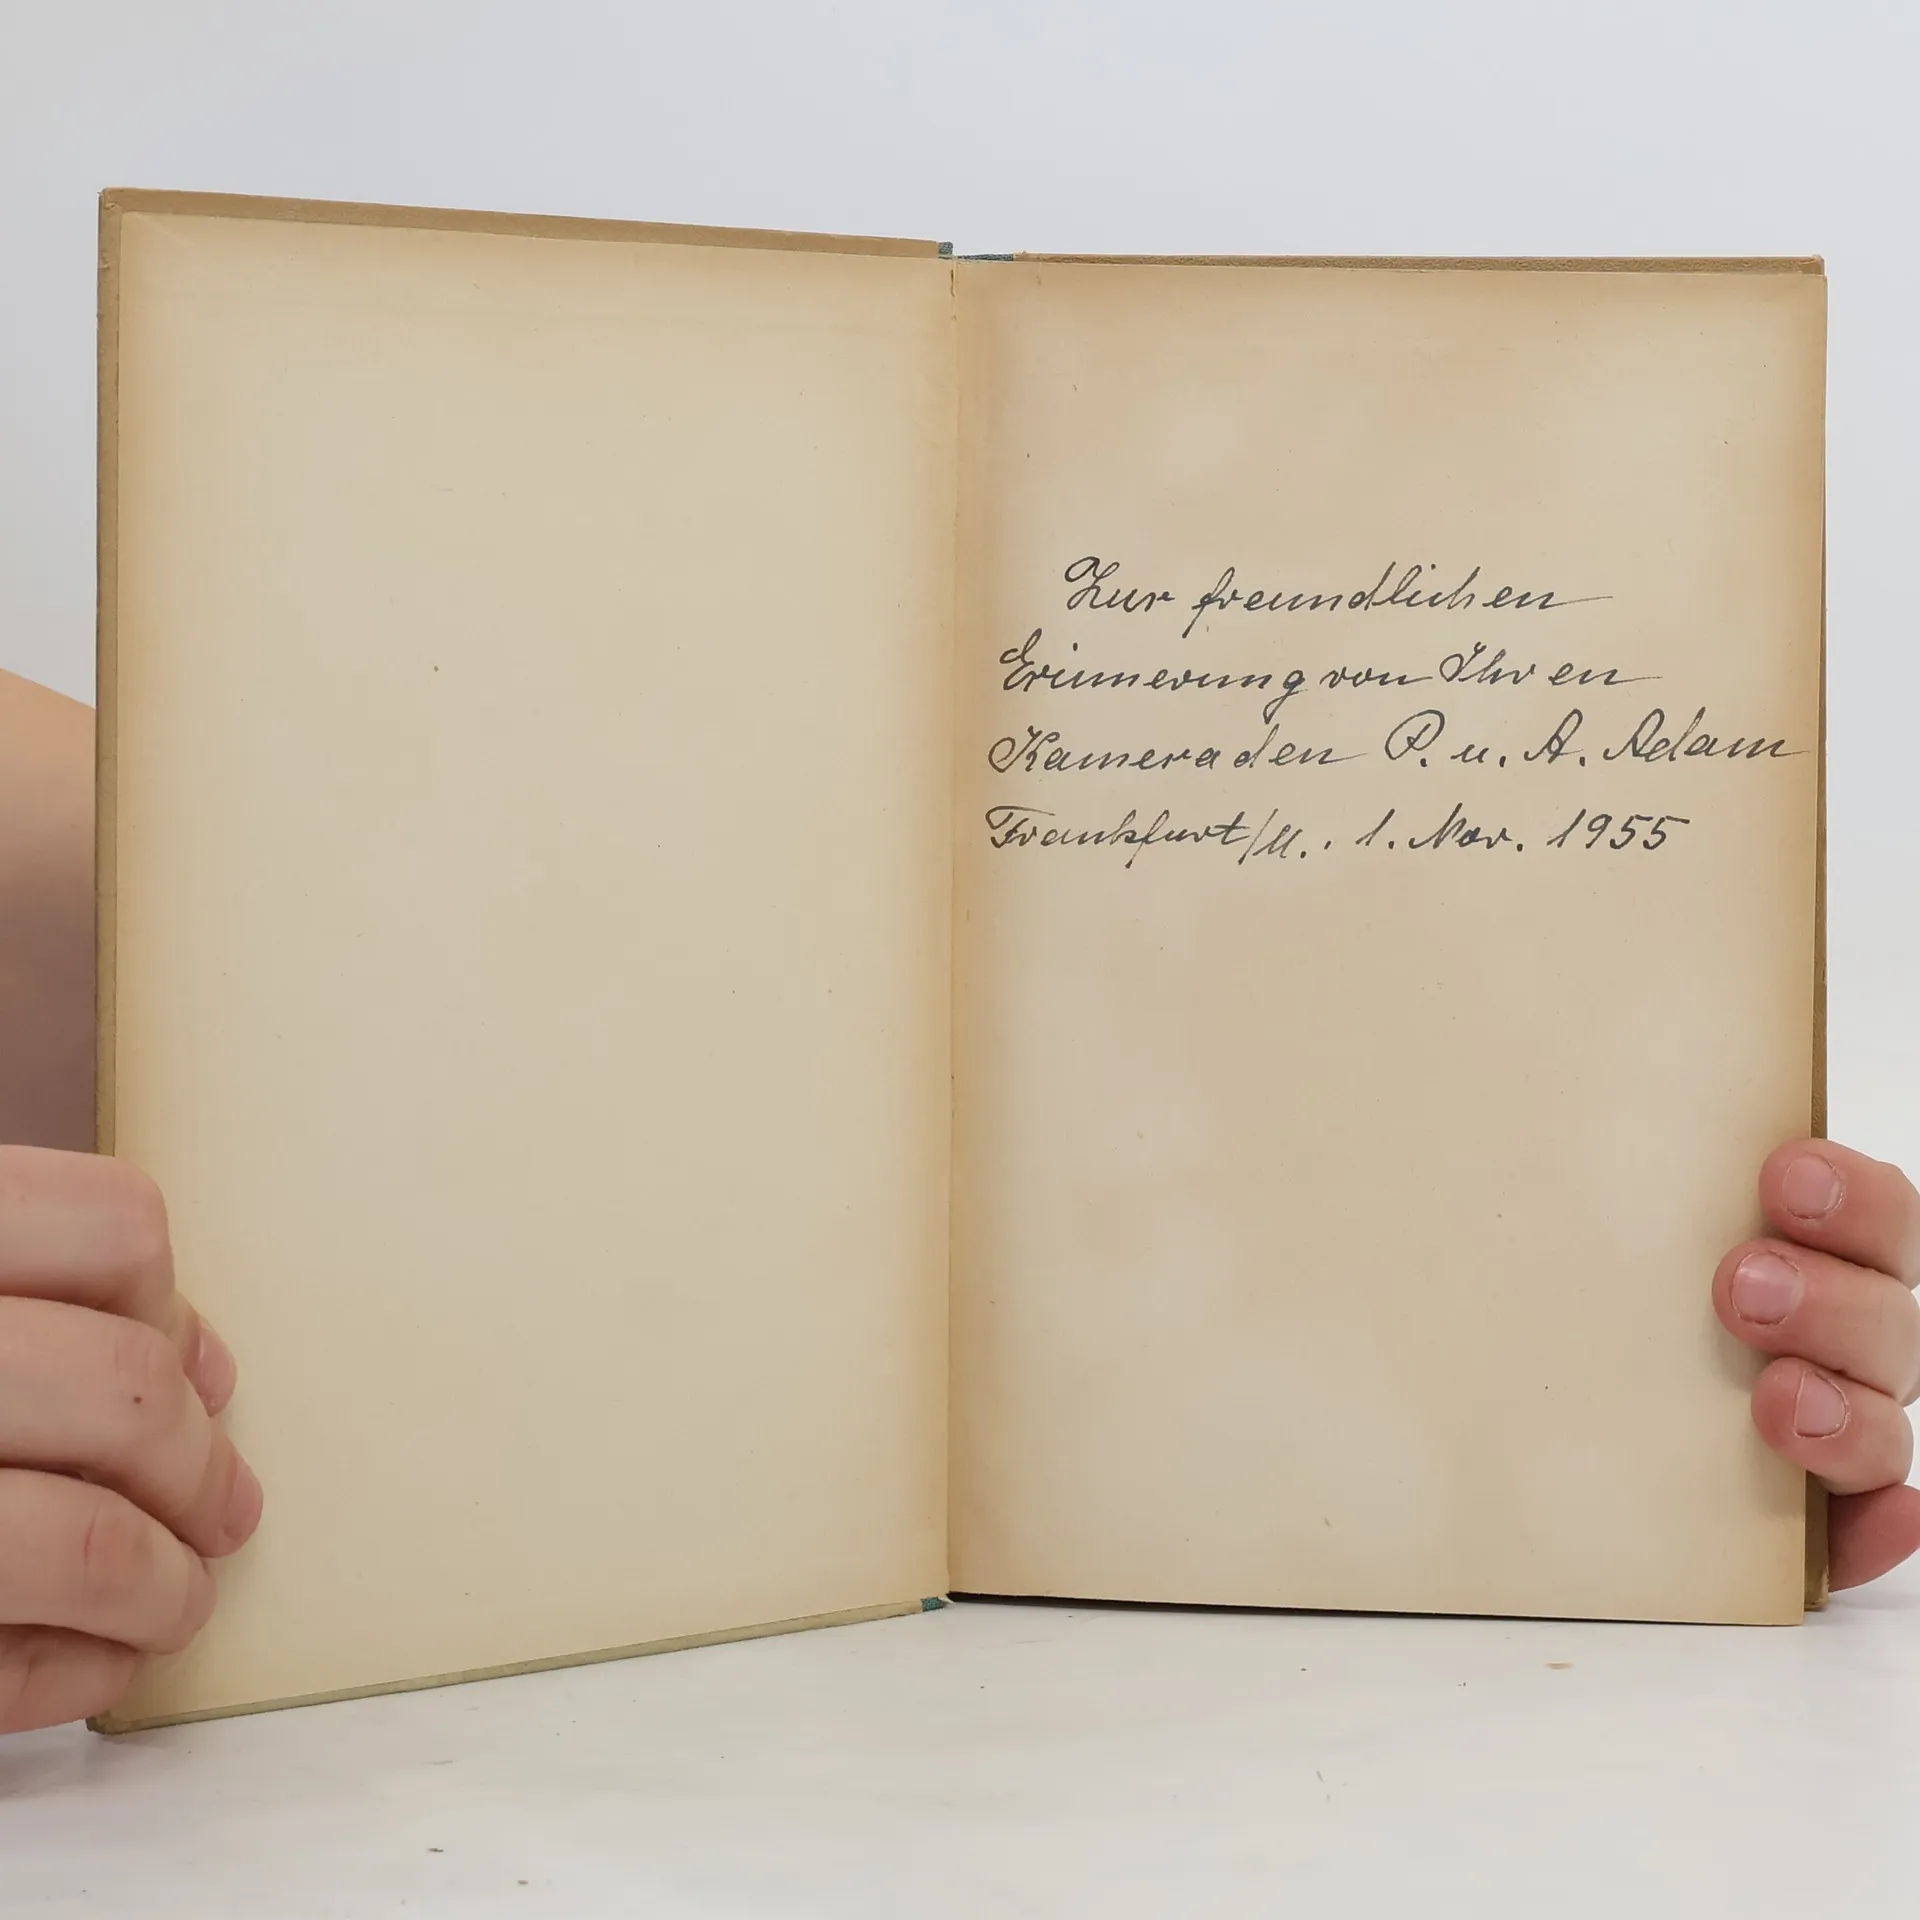 Zur freundlichen
Erinnerung von Ihren
Kameraden P. u. A. Adam
Frankfurt/M., 1. Nov. 1955